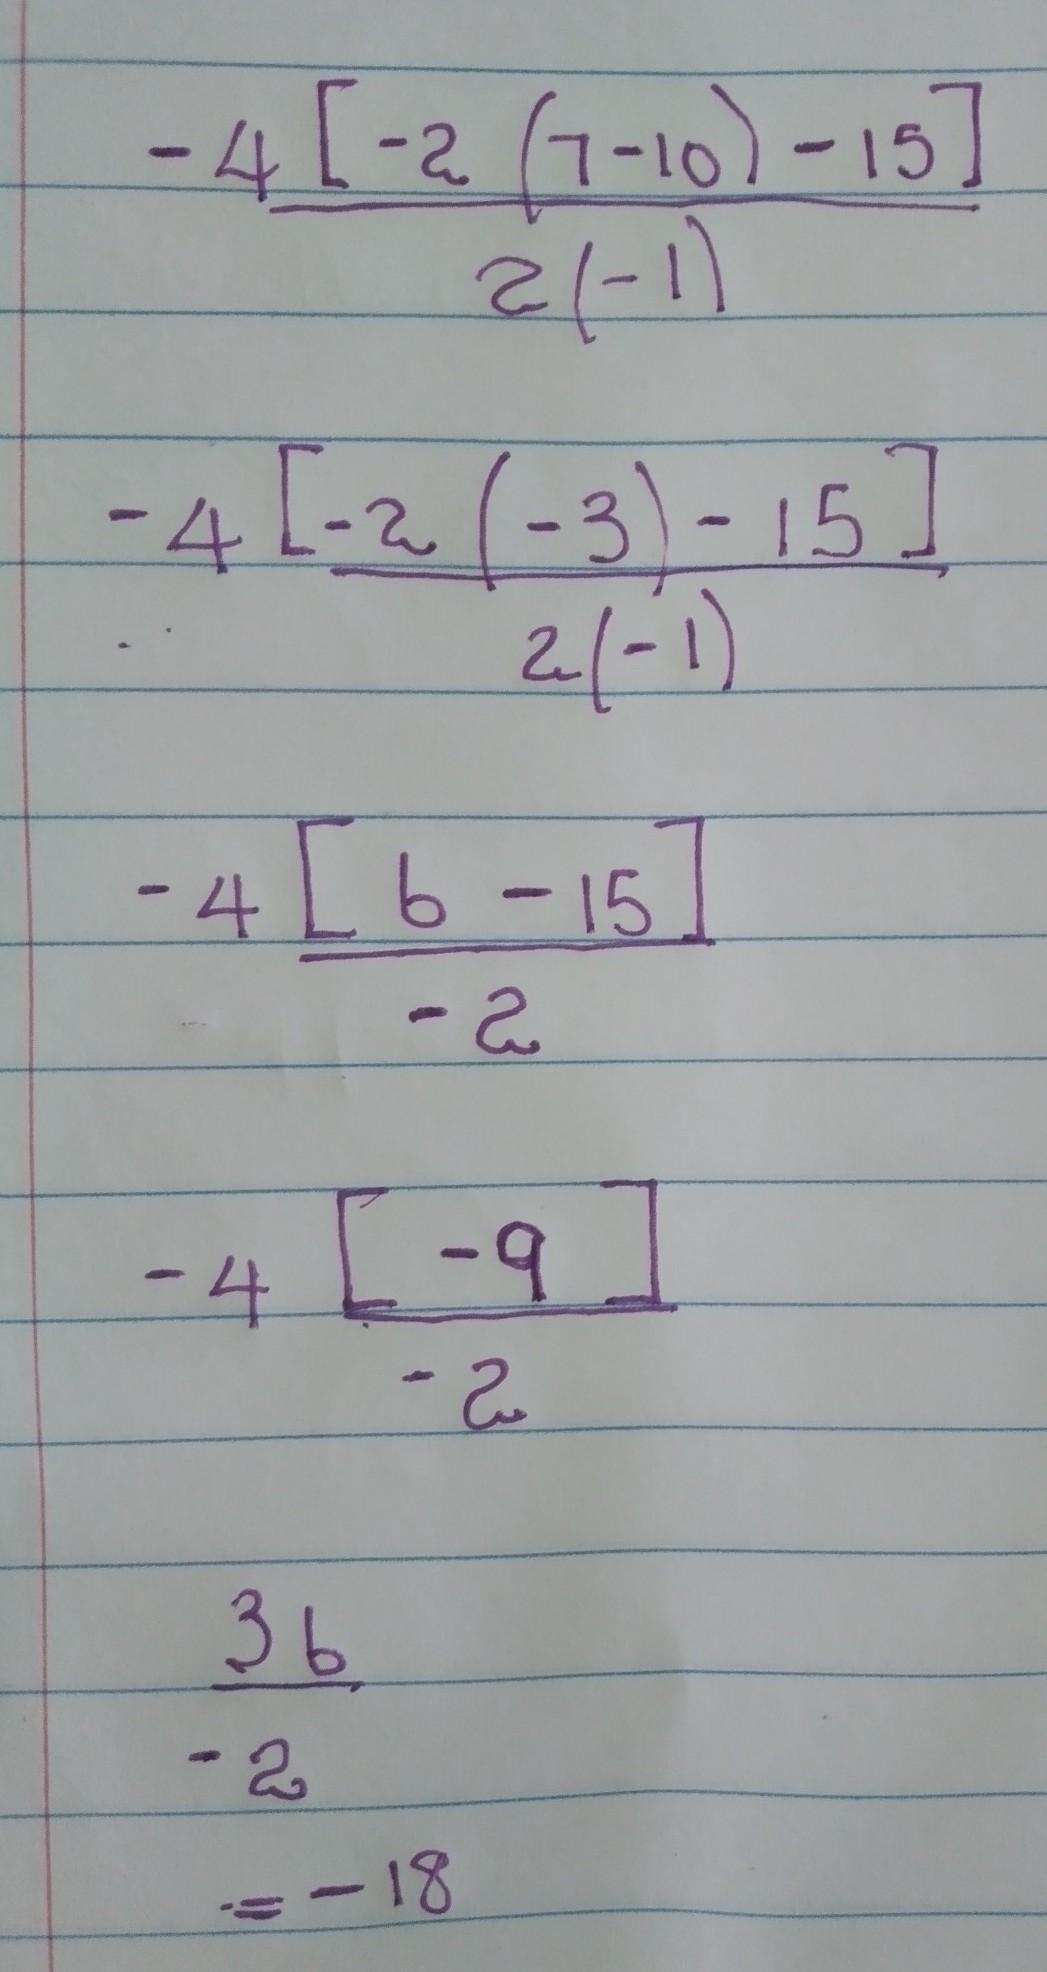 -4 [ -2 (7-10) - 15 ]
2(-1)
-4 [ -2 (-3) - 15 ]
2(-1)
-4 [ 6 - 15 ]
-2
-4 [ -9 ]
-2
36
-2
= -18